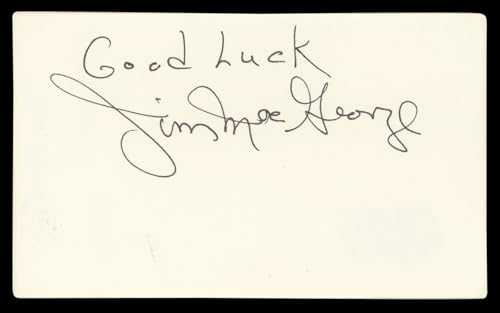 Good Luck
Jim McGeorge